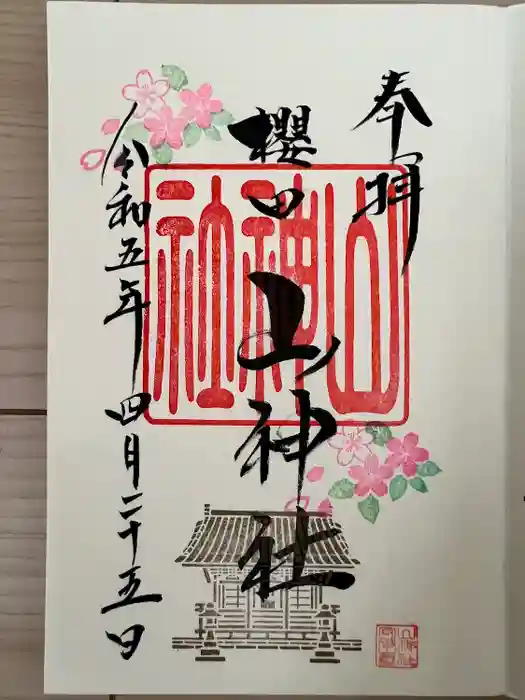 奉拝
櫻田
山神社
令和五年四月二十五日
山神社